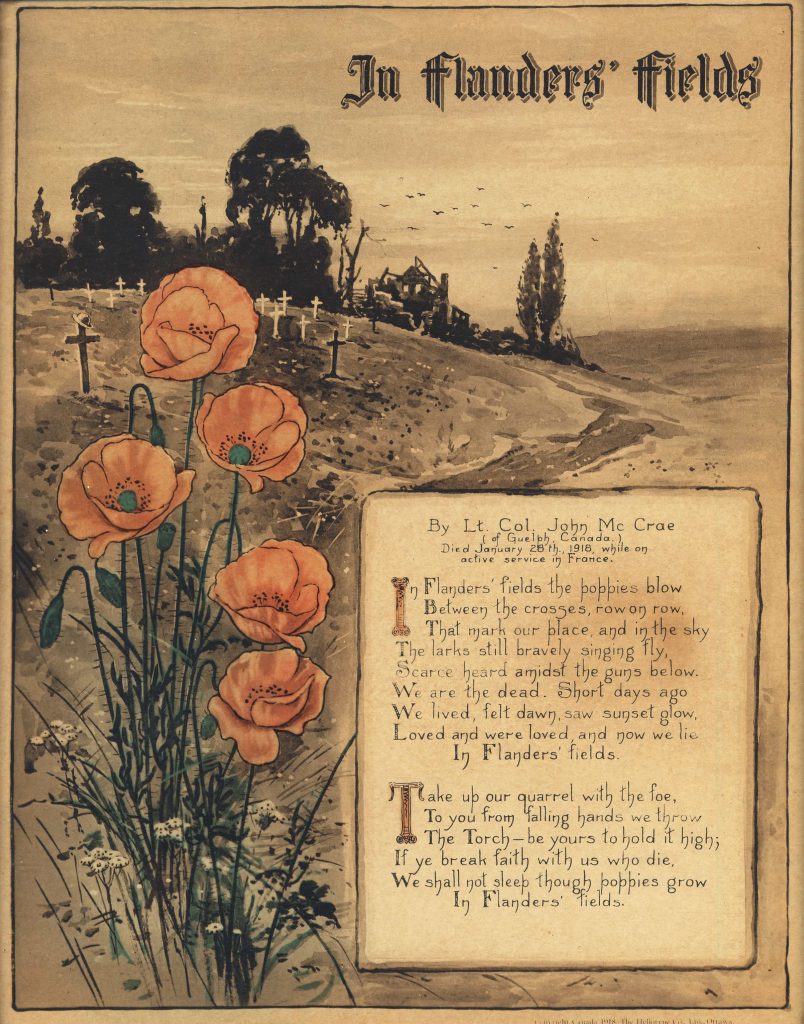 In Flanders' Fields
By Lt. Col. John Mc Crae
(of Guelph, Canada.)
Died January 28th., 1918, while on
active service in France.
In Flanders' fields the poppies blow
Between the crosses, row on row,
That mark our place, and in the sky
The larks still bravely singing fly,
Scarce heard amidst the guns below.
We are the dead. Short days ago
We lived, felt dawn, saw sunset glow,
Loved and were loved, and now we lie
In Flanders' fields.
Take up our quarrel with the foe,
To you from falling hands we throw
The Torch – be yours to hold it high;
If ye break faith with us who die,
We shall not sleep though poppies grow
In Flanders' fields.
Copyright Canada 1918, The Heliotype Co., Ltd., Ottawa.